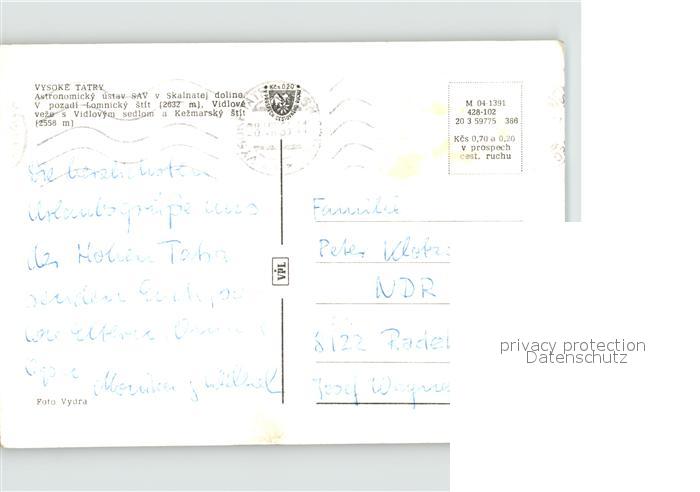 VYSOKÉ TATRY
Astronomický ústav SAV v Skalnatej doline.
V pozadí Lomnický štít (2632 m), Vidlové
veže s Vidlovým sedlom a Kežmarský štít
(2558 m)
Kčs 0,20
M 04-1391
428-102
20 3 59775 386
Kčs 0,70 a 0,20
v prospech
cest. ruchu
Die herzlichsten
Urlaubsgrüße aus
der Hohen Tatra
senden Euch, so
wie Eltern, Oma
Opa
Monika
VPL
Familie
Peter
NDR
8122
Josef Wagner
Foto Vydra
privacy protection
Datenschutz